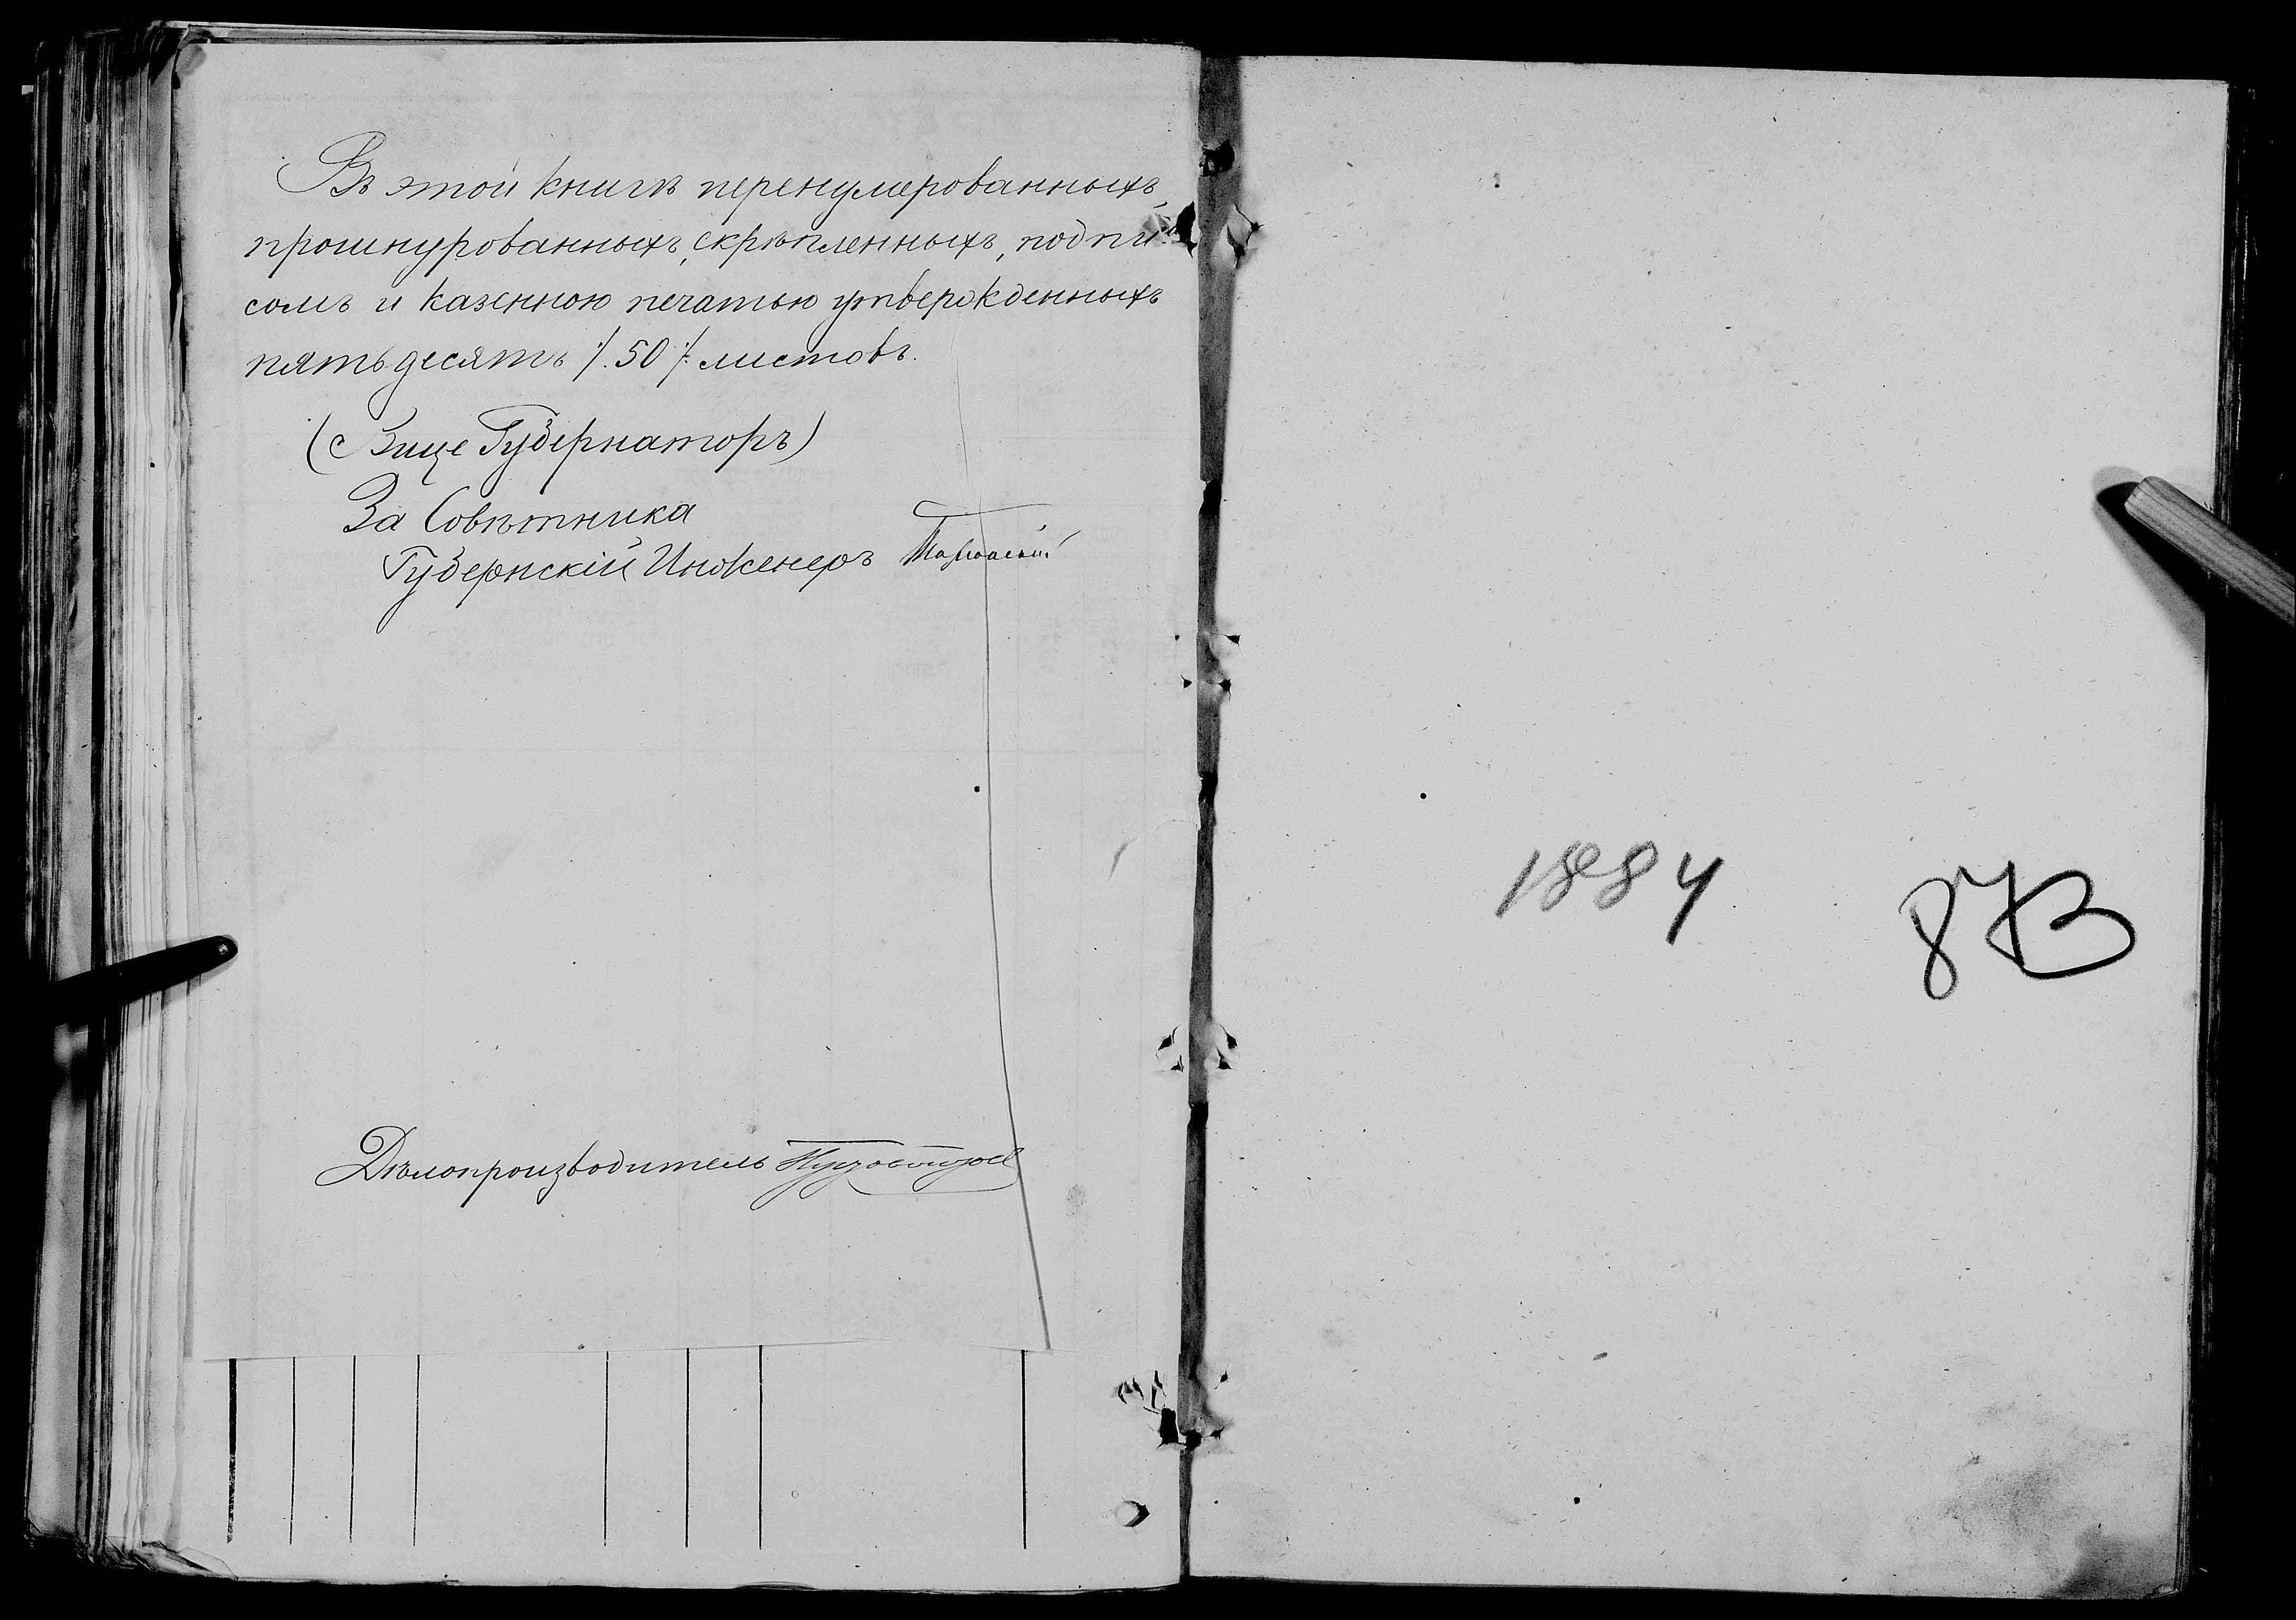 Въ этой книгѣ перенумерованныхъ,
прошнурованныхъ, скрѣпленныхъ, подпи
сомъ и казенною печатью утвержденныхъ
пятьдесятъ /. 50 /. листовъ.
(Вице Губернаторъ)
За Совѣтника
Губернскій Инженеръ
Дѣлопроизводитель
1884
873